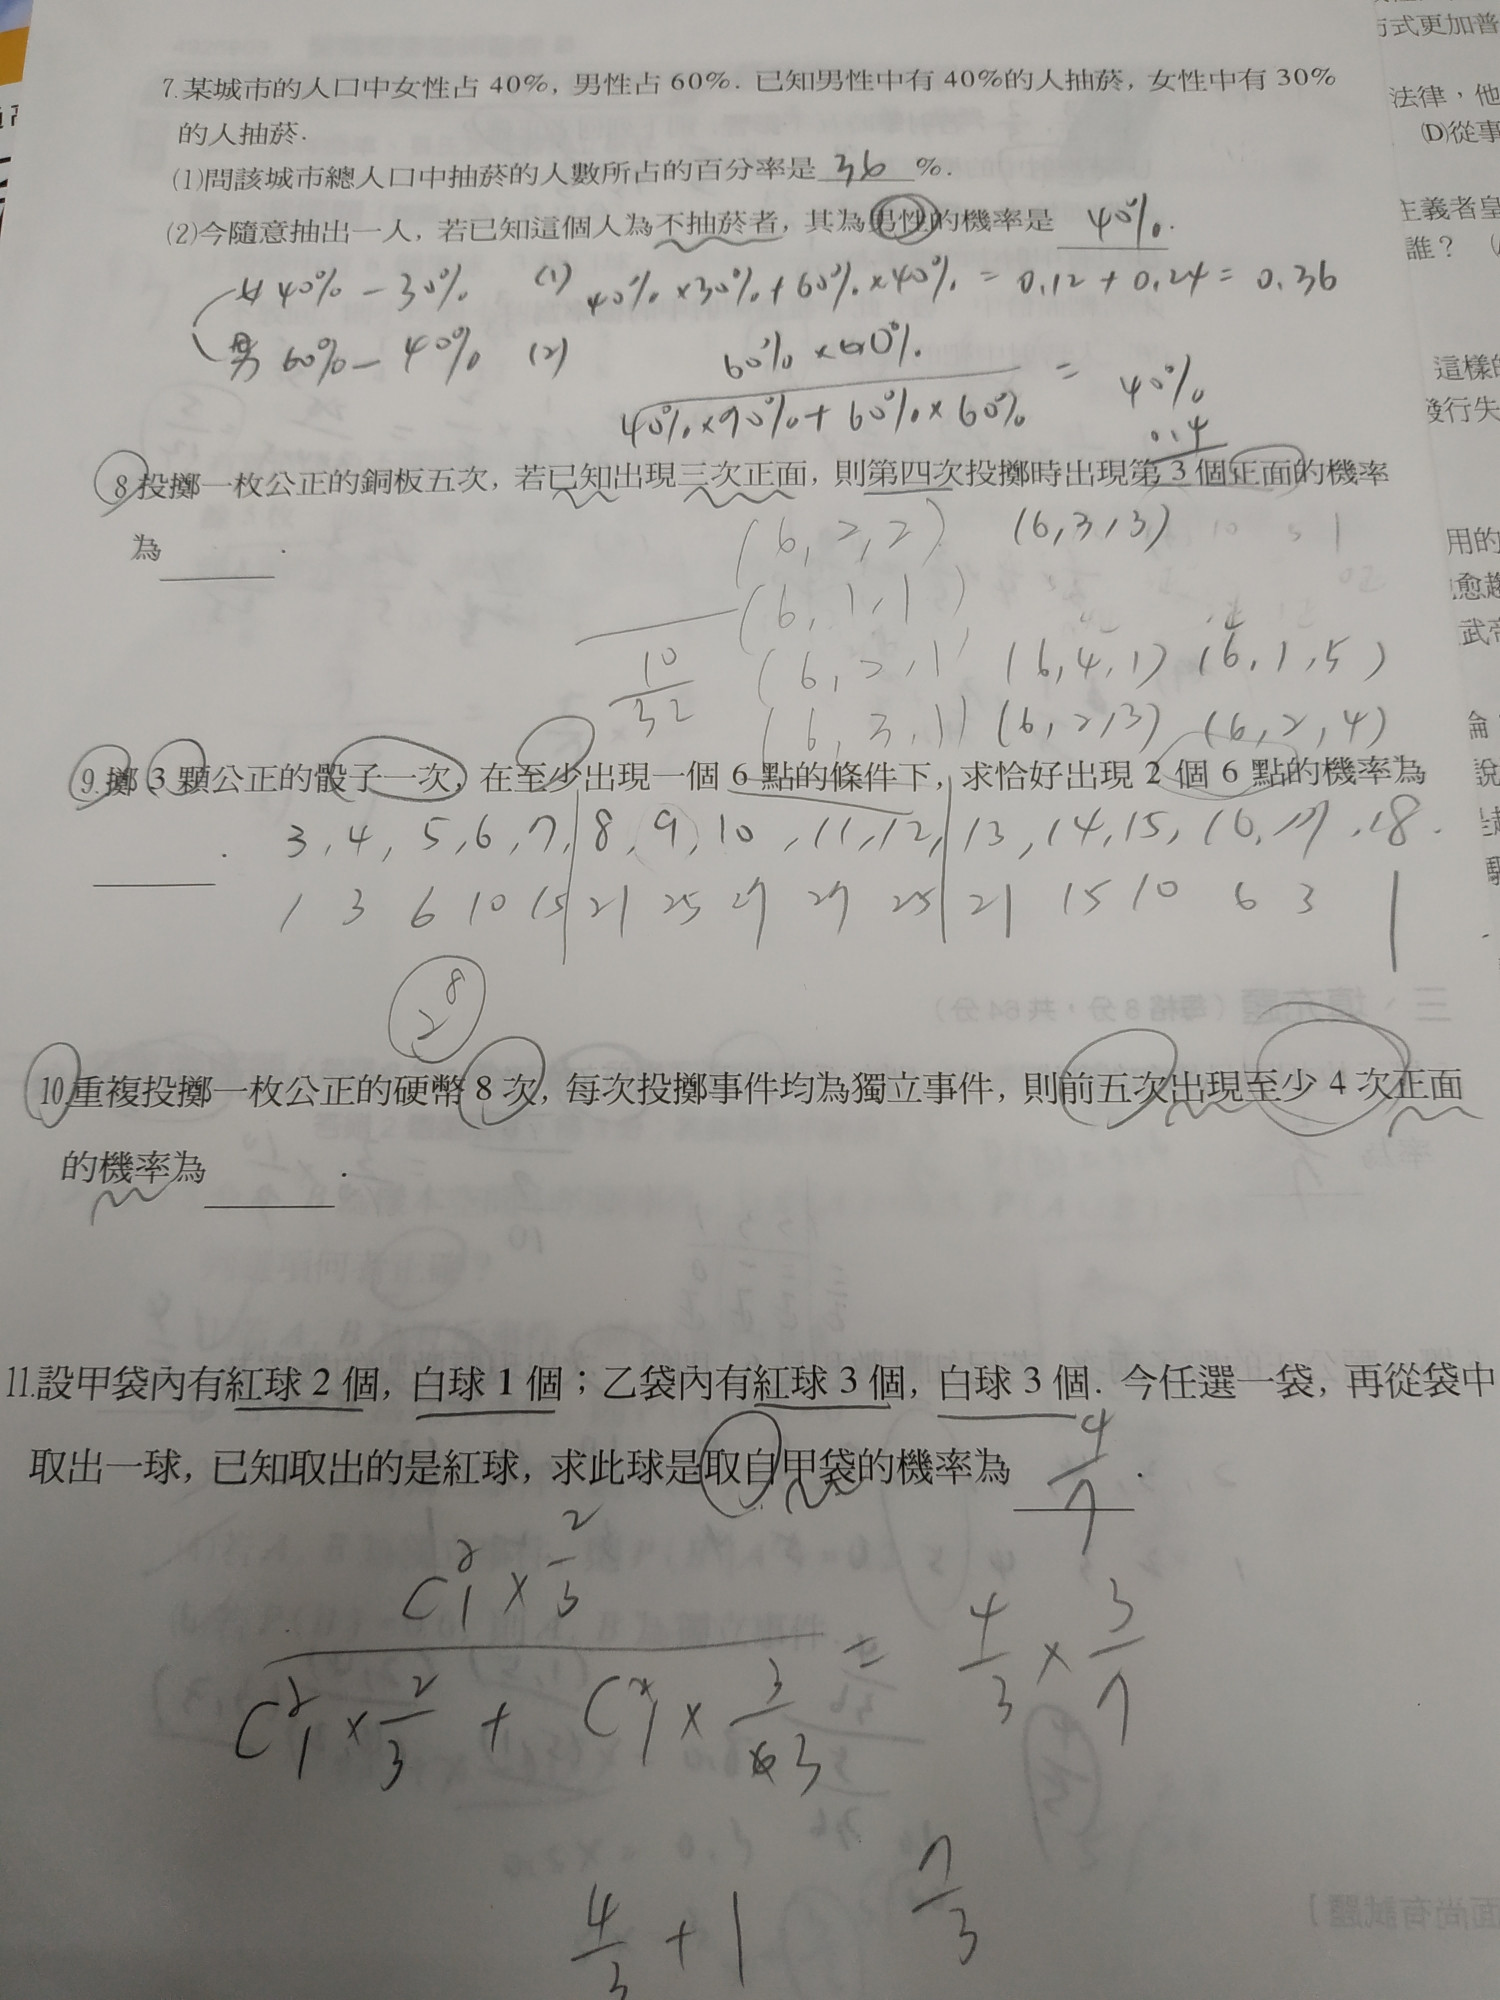 方式更加普
7.某城市的人口中女性占 40%, 男性占 60%. 已知男性中有 40%的人抽菸, 女性中有 30%
法律，他
的人抽菸.
(D)從事
(1)問該城市總人口中抽菸的人數所占的百分率是 36 %.
(2)今隨意抽出一人, 若已知這個人為不抽菸者, 其為男性的機率是 40%.
主義者皇
誰？
女 40% - 30% (1) 40% × 30% + 60% × 40% = 0.12 + 0.24 = 0.36
男 60% - 40% (2) 60% × 60%
40% × 90% + 60% × 60% = 40%
0.4
這樣的
發行失
8.投擲一枚公正的銅板五次, 若已知出現三次正面, 則第四次投擲時出現第 3 個正面的機率
為 .
(6,2,2) (6,3,3)
用的
愈趨
(6,1,1)
武帝
10
32
(6,2,1) (6,4,1) (6,1,5)
(6,3,1) (6,2,3) (6,2,4)
論
9.擲 3 顆公正的骰子一次, 在至少出現一個 6 點的條件下, 求恰好出現 2 個 6 點的機率為
說
.
3, 4, 5, 6, 7, 8, 9, 10, 11, 12, 13, 14, 15, 16, 17, 18.
1 3 6 10 15 21 25 27 27 25 21 15 10 6 3 1
2^8
10.重複投擲一枚公正的硬幣 8 次, 每次投擲事件均為獨立事件, 則前五次出現至少 4 次正面
的機率為 .
11.設甲袋內有紅球 2 個, 白球 1 個；乙袋內有紅球 3 個, 白球 3 個. 今任選一袋, 再從袋中
取出一球, 已知取出的是紅球, 求此球是取自甲袋的機率為 4/7 .
C²₁ × 2/3
C²₁ × 2/3 + C²₁ × 3/6 = 4/3 × 3/7
3
4/3 + 1 7/3